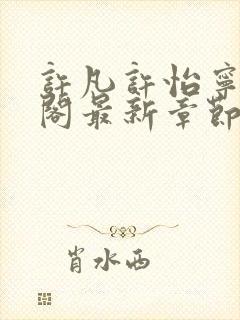 許凡許怡寧
閣最新章節
肖水西